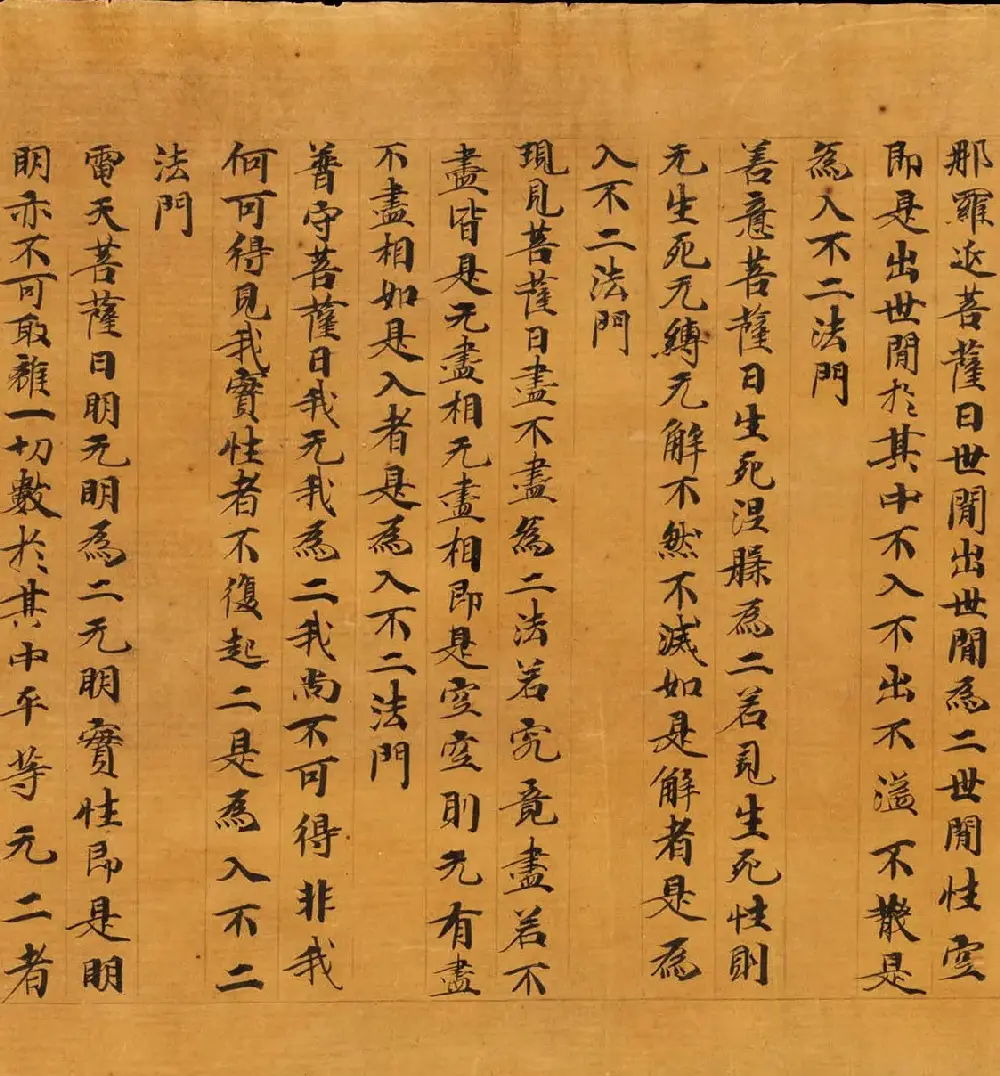 那羅延菩薩曰世間出世間為二世間性空
即是出世間於其中不入不出不溢不散是
為入不二法門
善意菩薩曰生死涅槃為二若見生死性則
无生死无縛无解不然不滅如是解者是為
入不二法門
現見菩薩曰盡不盡為二法若究竟盡若不
盡皆是无盡相无盡相即是空空則无有盡
不盡相如是入者是為入不二法門
普守菩薩曰我无我為二我尚不可得非我
何可得見我實性者不復起二是為入不二
法門
電天菩薩曰明无明為二无明實性即是明
明亦不可取離一切數於其中平等无二者